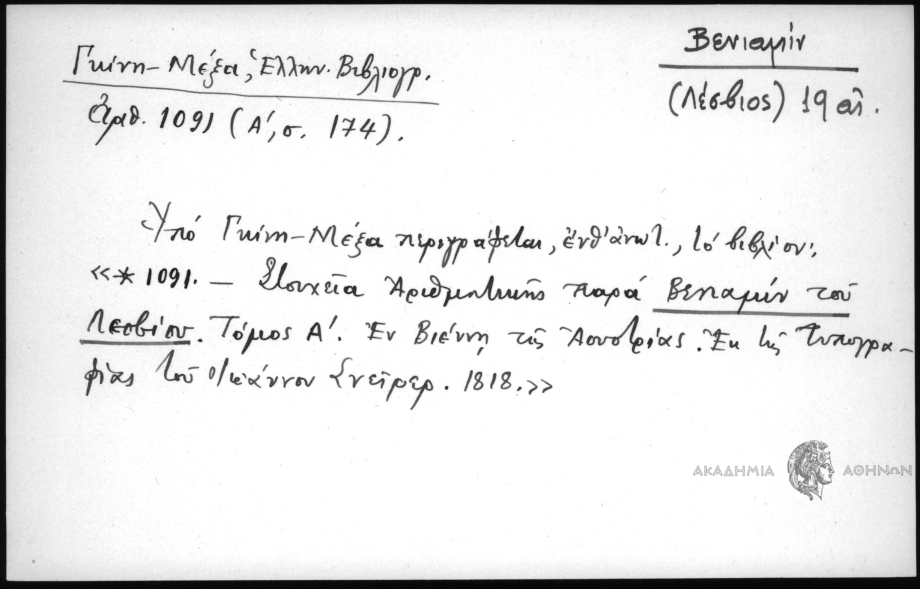 Βενιαμίν
(Λέσβιος) 19 αἰ.
Γκίνη–Μέξα, Ἑλλην. Βιβλιογρ.
ἀριθ. 1091 (Α', σ. 174).
Ὑπό Γκίνη–Μέξα περιγράφεται, ἔνθ' ἀνωτ., τό βιβλίον:
«* 1091. – Στοιχεῖα Ἀριθμητικῆς παρά Βενιαμίν τοῦ
Λεσβίου. Τόμος Α'. Ἐν Βιέννῃ τῆς Ἀουστρίας. Ἐκ τῆς Τυπογρα–
φίας τοῦ Ἰωάννου Σνείρερ. 1818.»
ΑΚΑΔΗΜΙΑ ΑΘΗΝΩΝ